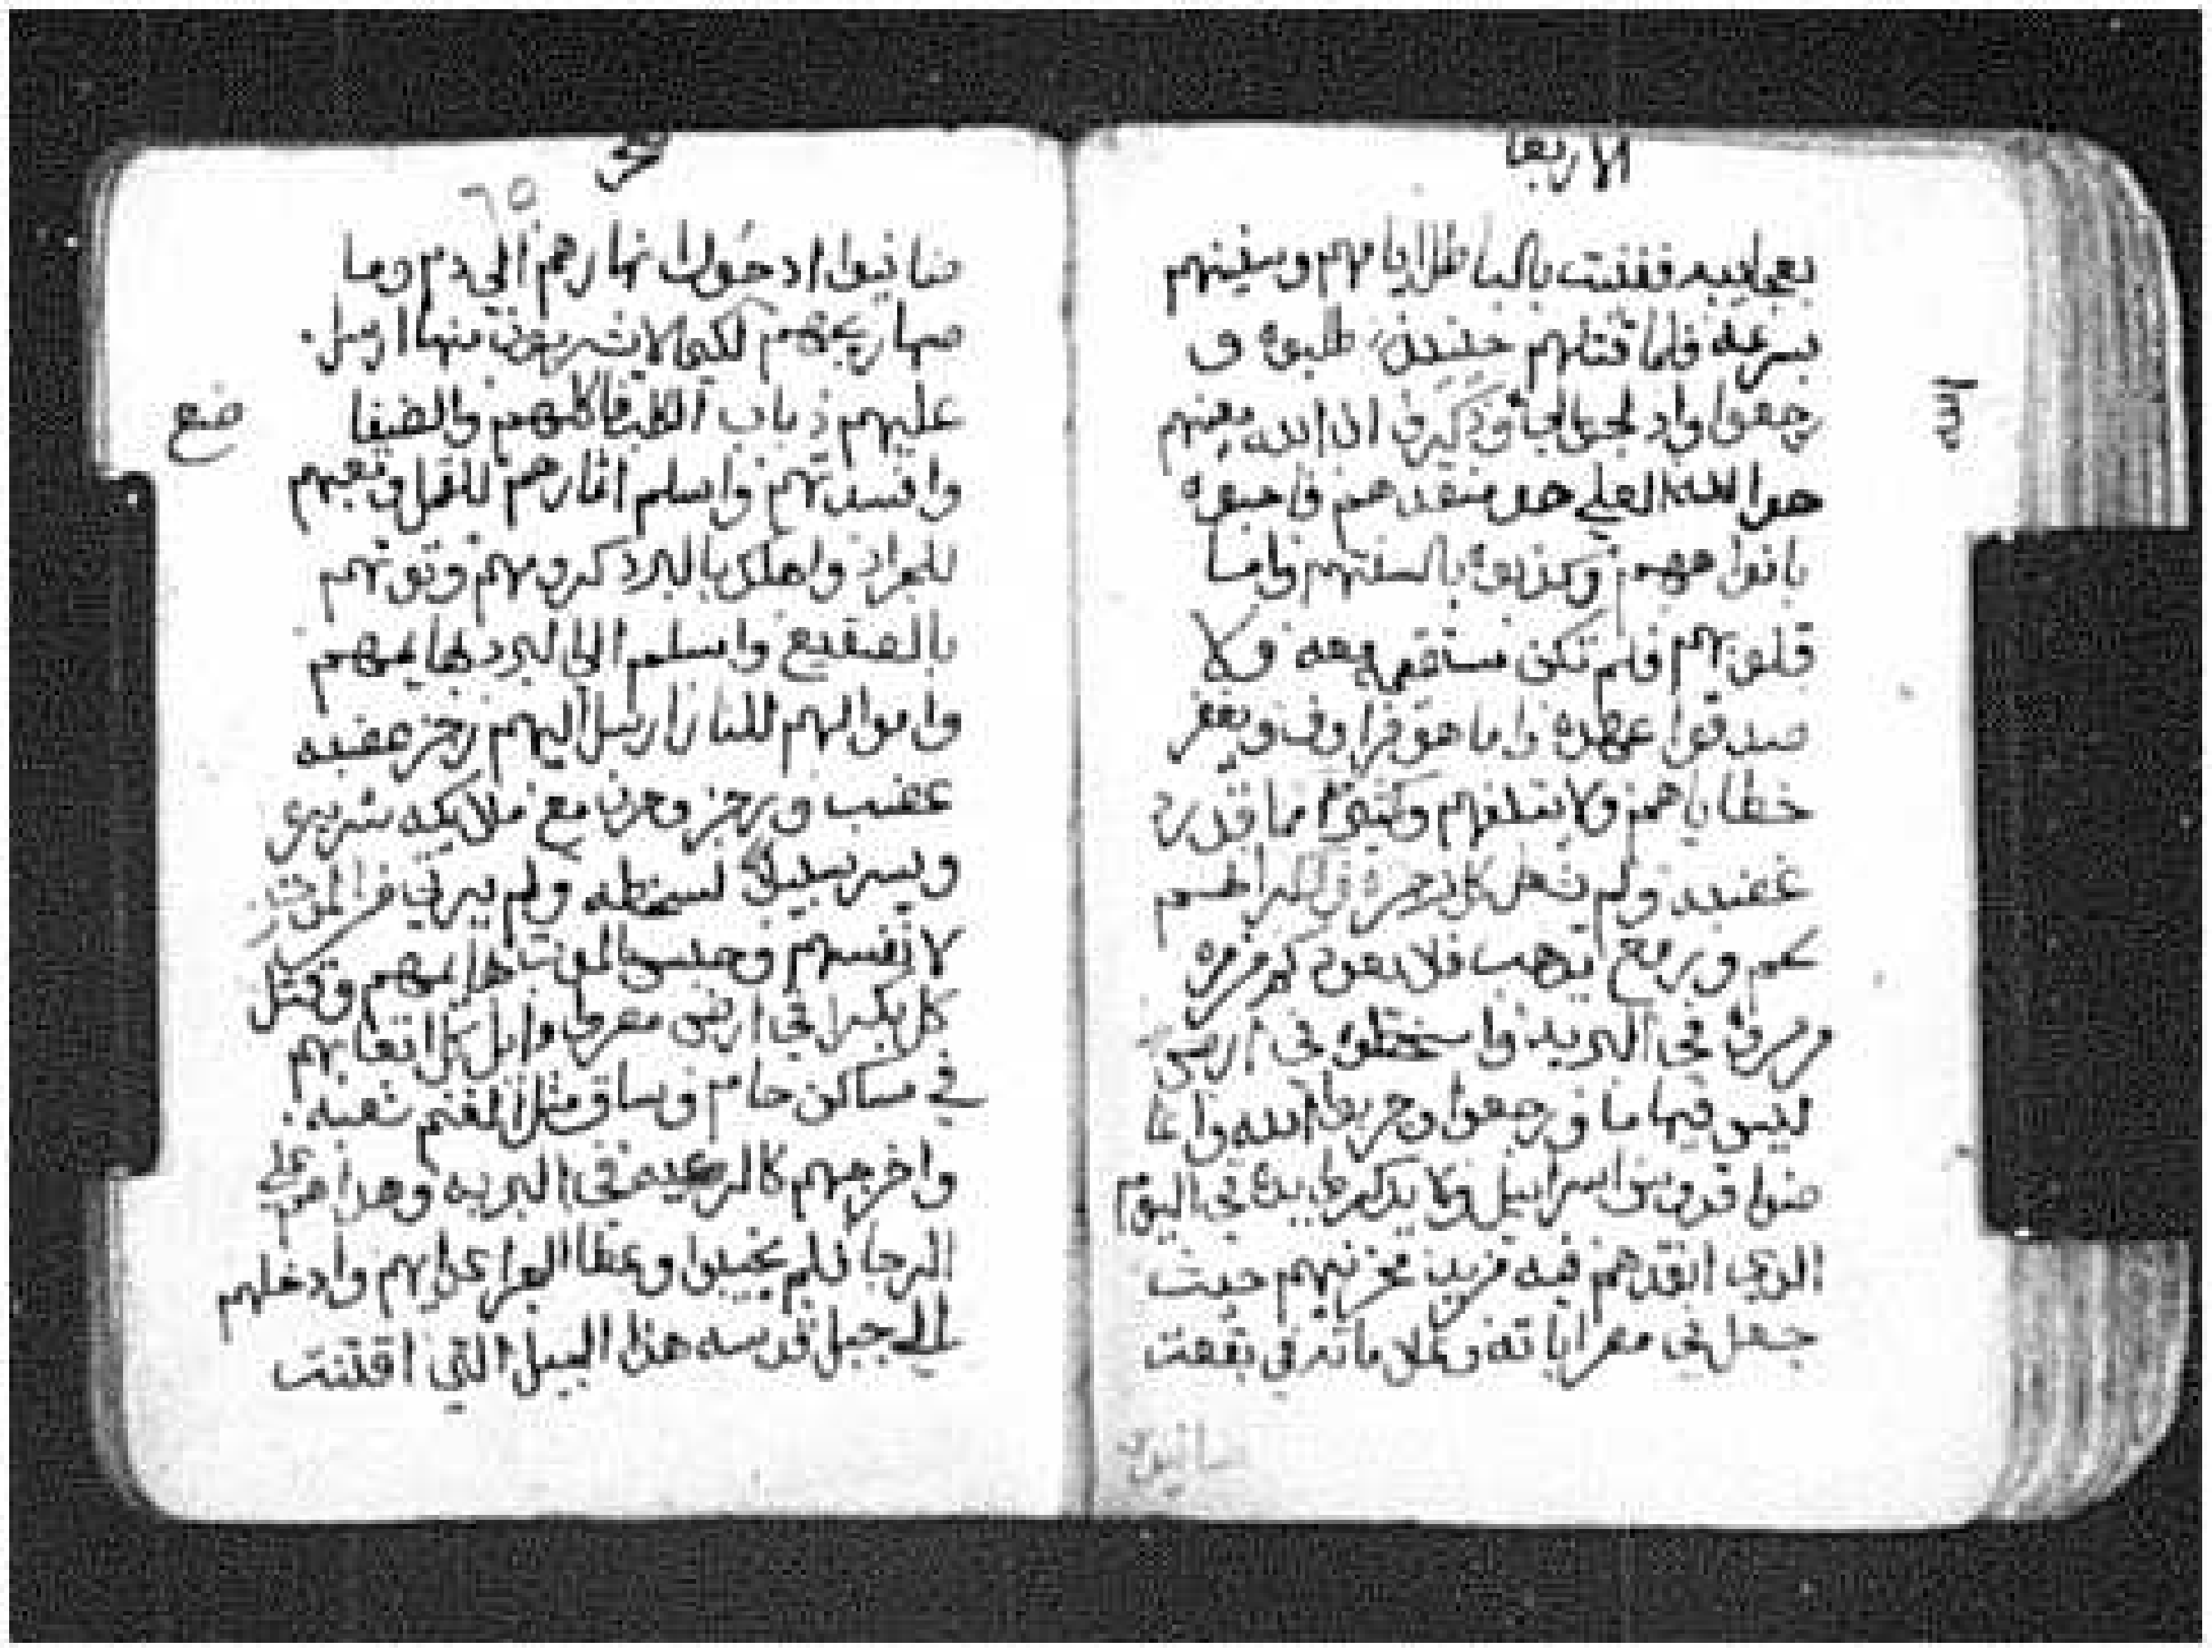 الاربعا
بعجايبه ففنيت بالباطل ايامهم وسنينهم
بسرعه فلما قتلهم حينيذ طلبوه و
رجعوا وادلجوا اليه وذكروا ان الله معينهم
هوا الله العلي هو منقذهم فاحبوه
بافواههم وكذبوه بالسنتهم واما
قلوبهم فلم تكن مستقيمه معه ولا
صدقوا عهده واما هو فراوف ويغفر
خطاياهم ولا يتلفهم وكثيرا ما قد رد
غضبه ولم يشعل كل رجزه وذكر انهم
لحم وريح تذهب فلا تعود كم من مره
مرمروه في البريه واسخطوه في ارض
ليس فيها ما ورجعوا وجربوا الله واغا
ضوا قدوس اسراييل ولا يذكروا يده في اليوم
الذي انقذهم فيه من يد محزنيهم حيث
جعل في مصر اياته وعلاماته في بقعت
صانيوا
الله
٦٥
صانيوا ادحول انهارهم الي دم وما
صهاريجهم لكي لا يشربون منها ارسل
عليهم ذباب الكلب فاكلهم والضفا
وافسدتهم واسلم اثمارهم للقمل وتعبهم
للجراد واهلك بالبرد كرومهم وتوتهم
بالصقيع واسلم الي البرد بهايمهم
واموالهم للنار ارسل اليهم رجز غضبه
غضب ورجز وحزن مع ملايكه شريري
ويسر سبيلا لسخطه ولم يرتي من الموت
لانفسهم وحبس الموت بهايمهم وقتل
كل بكرا في ارض مصر واوايل كل اتعابهم
في مساكن حام وساق مثل الغنم شعبه
واخرجهم كالرعيه في البريه وهداهم علي
الرجا فلم يخيبوا وغطا البحر اعداهم وادخلهم
الي جبل قدسه هذا الجبل التي اقتنت
ضع